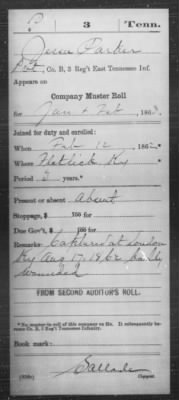 P 3 Tenn.
Jesse Parker
Pvt, Co. B, 3 Reg't East Tennessee Inf.
Appears on
Company Muster Roll
for Jan & Feb, 1863.
Joined for duty and enrolled:
When Feb 12, 1862.
Where Flatlick Ky
Period 3 years.*
Present or absent Absent
Stoppage, $ 100 for
Due Gov't, $ 100 for
Remarks: Captured at London
Ky Aug 17, 1862 badly
wounded
FROM SECOND AUDITOR'S ROLL.
*No muster-in roll of this company on file. It subsequently became Co. B, 3 Reg't Tennessee Infantry.
Book mark:
Ballade
Copyist.